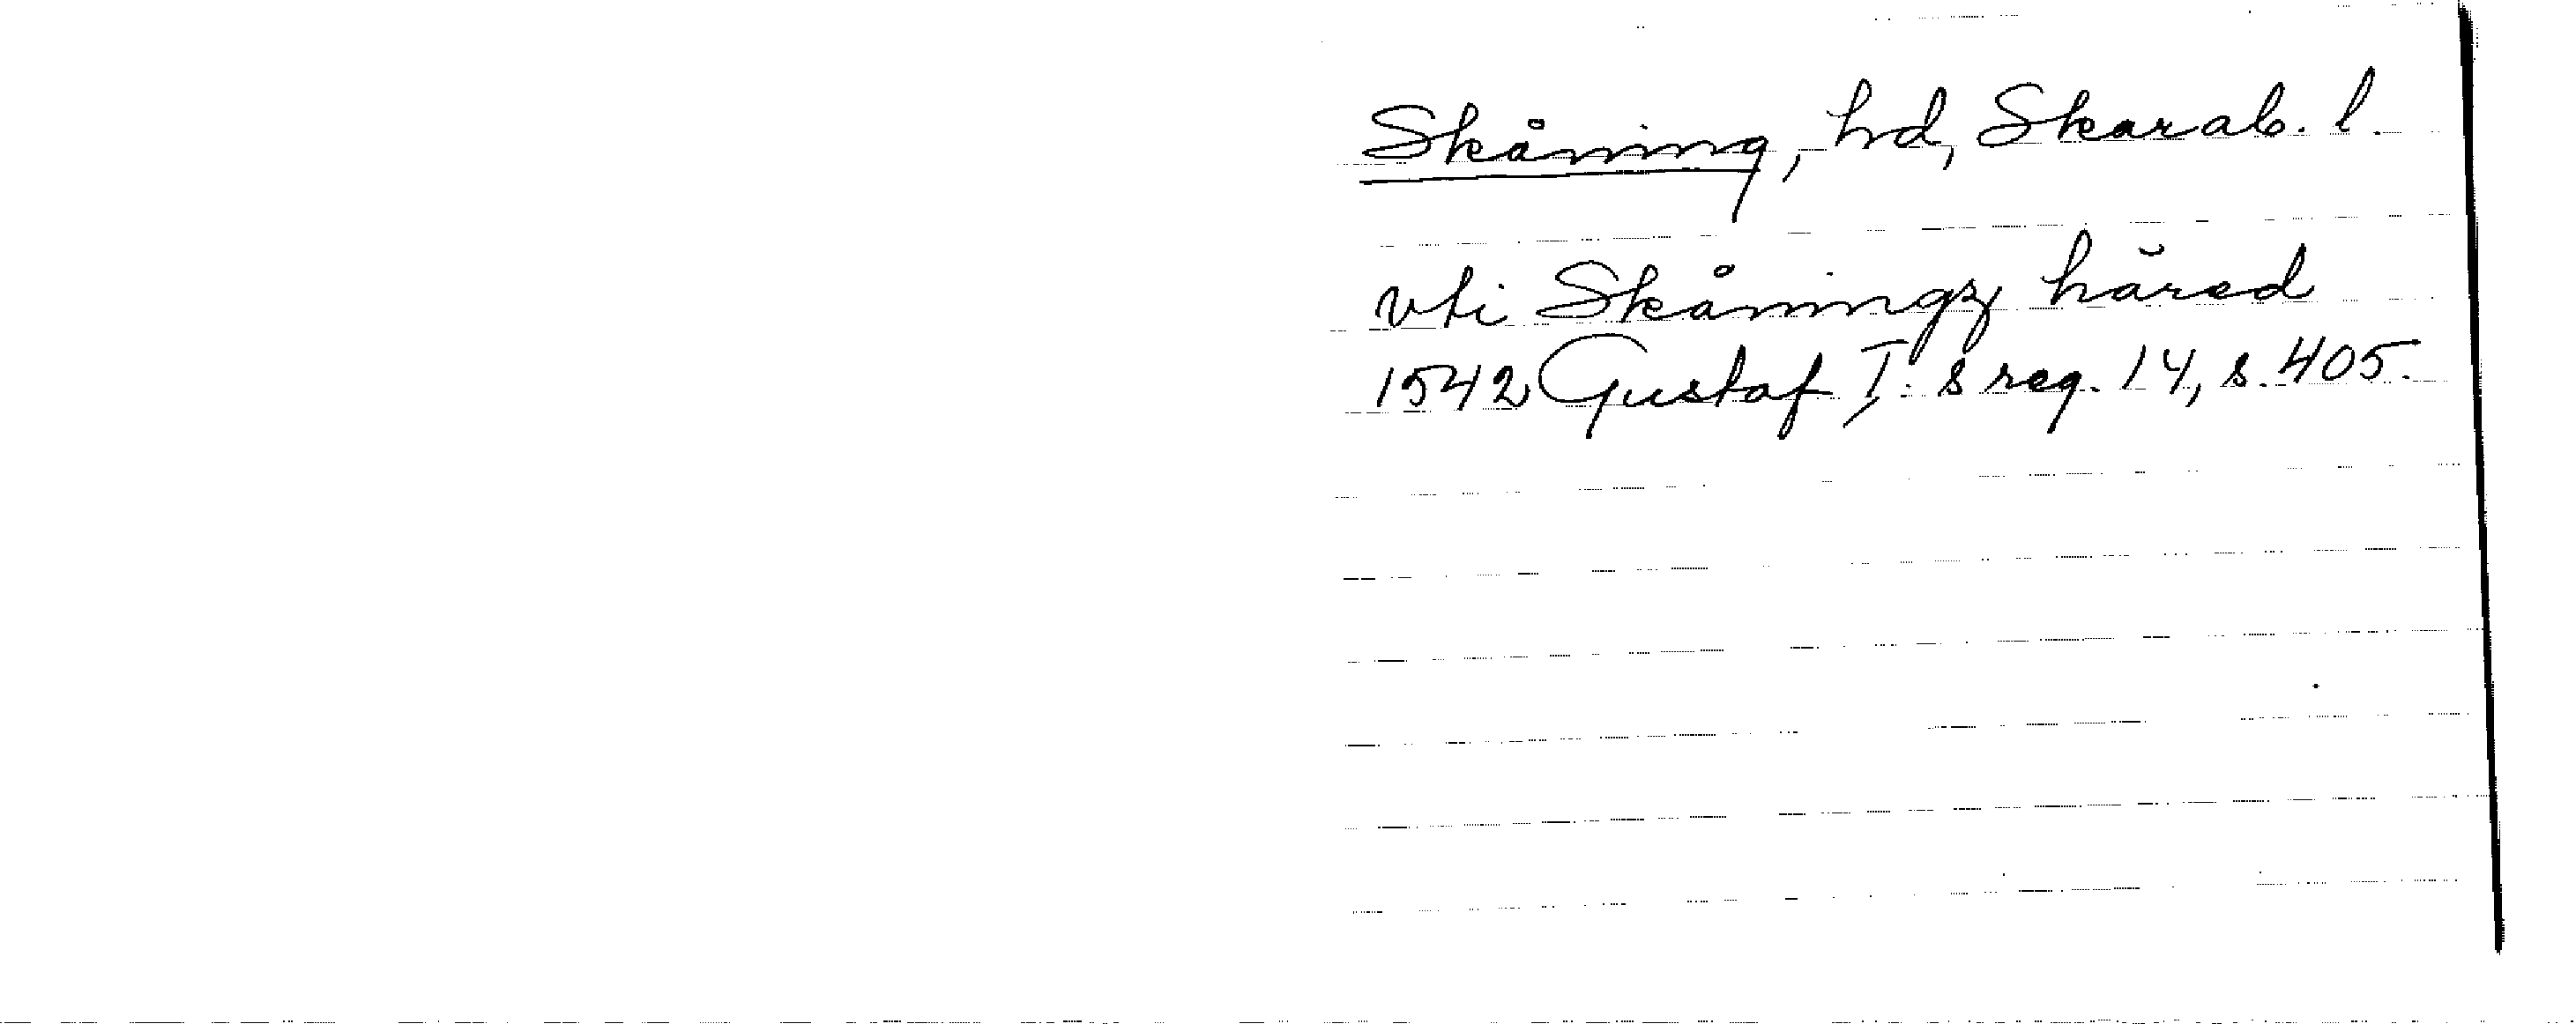 Skåning, hd, Skarab. l.
vti Skåningz häred
1542 Gustaf I:s reg. 14, s. 405.